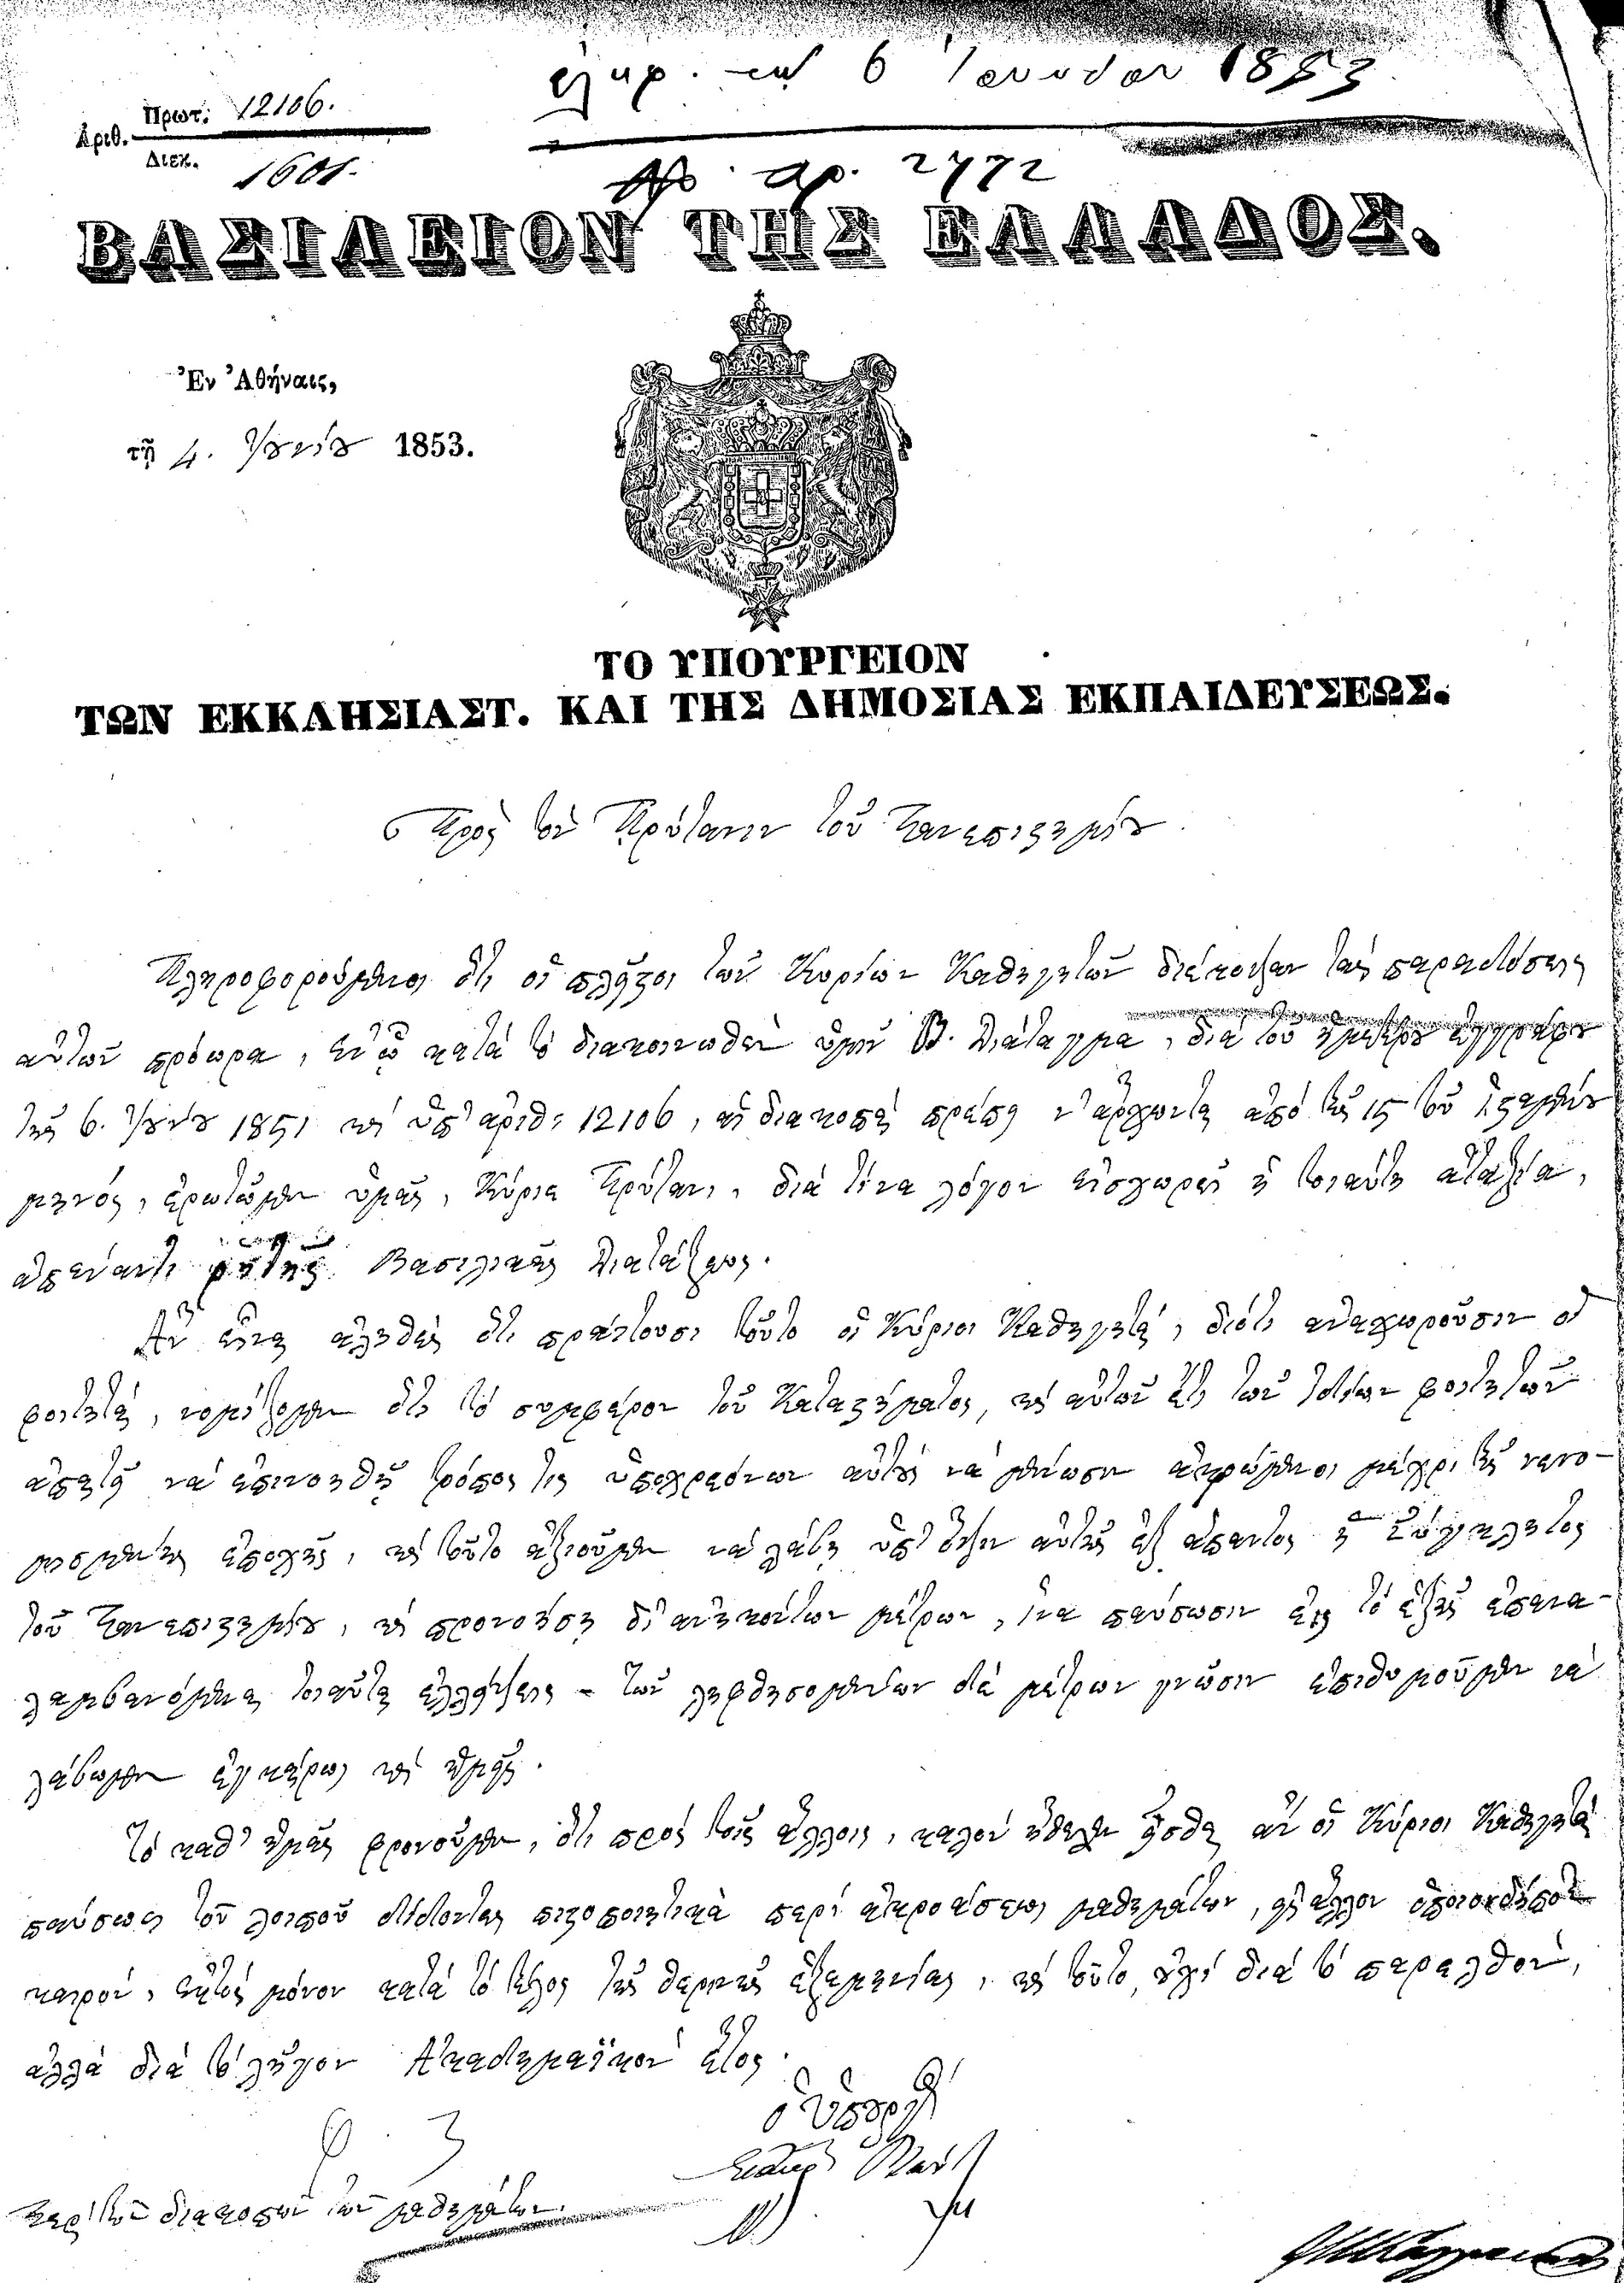 ἐλήφ. τῇ 6 Ἰουνίου 1853
Ἀριθ. Πρωτ: 12106.
Διεκ. 1601.
ἀρ. 2772
ΒΑΣΙΛΕΙΟΝ ΤΗΣ ΕΛΛΑΔΟΣ.
Ἐν Ἀθήναις,
τῇ 4. Ἰουνίου 1853.
ΤΟ ΥΠΟΥΡΓΕΙΟΝ
ΤΩΝ ΕΚΚΛΗΣΙΑΣΤ. ΚΑΙ ΤΗΣ ΔΗΜΟΣΙΑΣ ΕΚΠΑΙΔΕΥΣΕΩΣ.
Πρὸς τὸν Πρύτανιν τοῦ Πανεπιστημίου.
Πληροφορούμενοι ὅτι οἱ πλεῖστοι τῶν Κυρίων Καθηγητῶν διέκοψαν τὰς παραδόσεις
αὑτῶν πρόωρα, ἐν ᾧ κατὰ τὸ διακοινωθὲν ὑμῖν Β. Διάταγμα, διὰ τοῦ ἡμετέρου ἐγγράφου
τῆς 6. Ἰουνίου 1851 καὶ ὑπ' ἀριθ: 12106, αἱ διακοπαὶ πρέπει ν' ἄρχωνται ἀπὸ τῆς 15 τοῦ ἱσταμένου
μηνός, ἐρωτῶμεν ὑμᾶς, Κύριε Πρύτανι, διὰ τίνα λόγον εἰσχωρεῖ ἡ τοιαύτη ἀταξία,
ἀπέναντι ῥητῆς Βασιλικῆς Διατάξεως.
Ἂν εἶναι ἀληθὲς ὅτι πράττουσι τοῦτο οἱ Κύριοι Καθηγηταί, διότι ἀναχωροῦσιν οἱ
φοιτηταί, νομίζομεν ὅτι τὸ συμφέρον τοῦ Καταστήματος, καὶ αὐτῶν ἔτι τῶν ἰδίων φοιτητῶν
ἀπαιτεῖ νὰ ἐπινοηθῇ τρόπος τις ὑποχρεόνων αὐτοὺς νὰ μένωσιν ἀκροώμενοι μέχρι τῆς νενο-
μισμένης ἐποχῆς, καὶ τοῦτο ἀξιοῦμεν νὰ λάβῃ ὑπ' ὄψιν αὑτῆς ἐξ ἅπαντος ἡ Σύγκλητος
τοῦ Πανεπιστημίου, καὶ προνοήσῃ δι' ἀνηκόντων μέτρων, ἵνα παύσωσιν εἰς τὸ ἑξῆς ἐπανα-
λαμβανόμεναι τοιαῦται ἐλλείψεις – τῶν ληφθησομένων δὲ μέτρων γνῶσιν ἐπιθυμοῦμεν νὰ
λάβωμεν ἐγκαίρως καὶ ἡμεῖς.
Τὸ καθ' ἡμᾶς φρονοῦμεν, ὅτι πρὸς τοῖς ἄλλοις, καλὸν ἤθελεν εἶσθαι ἂν οἱ Κύριοι Καθηγηταὶ
παύσωσι τοῦ λοιποῦ δίδοντες πιστοποιητικὰ περὶ ἀκροάσεως μαθημάτων, εἰς ἄλλον ὁποιονδήποτε
καιρόν, ἐκτὸς μόνον κατὰ τὸ τέλος τῆς θερινῆς ἑξαμηνίας, καὶ τοῦτο, οὐχὶ διὰ τὸ παρελθόν,
ἀλλὰ διὰ τὸ λῆγον Ἀκαδημαϊκὸν ἔτος.
Ὁ Ὑπουργὸς
Σταῦρ. Βλάχ
Περὶ τῶν διακοπῶν τῶν μαθημάτων.